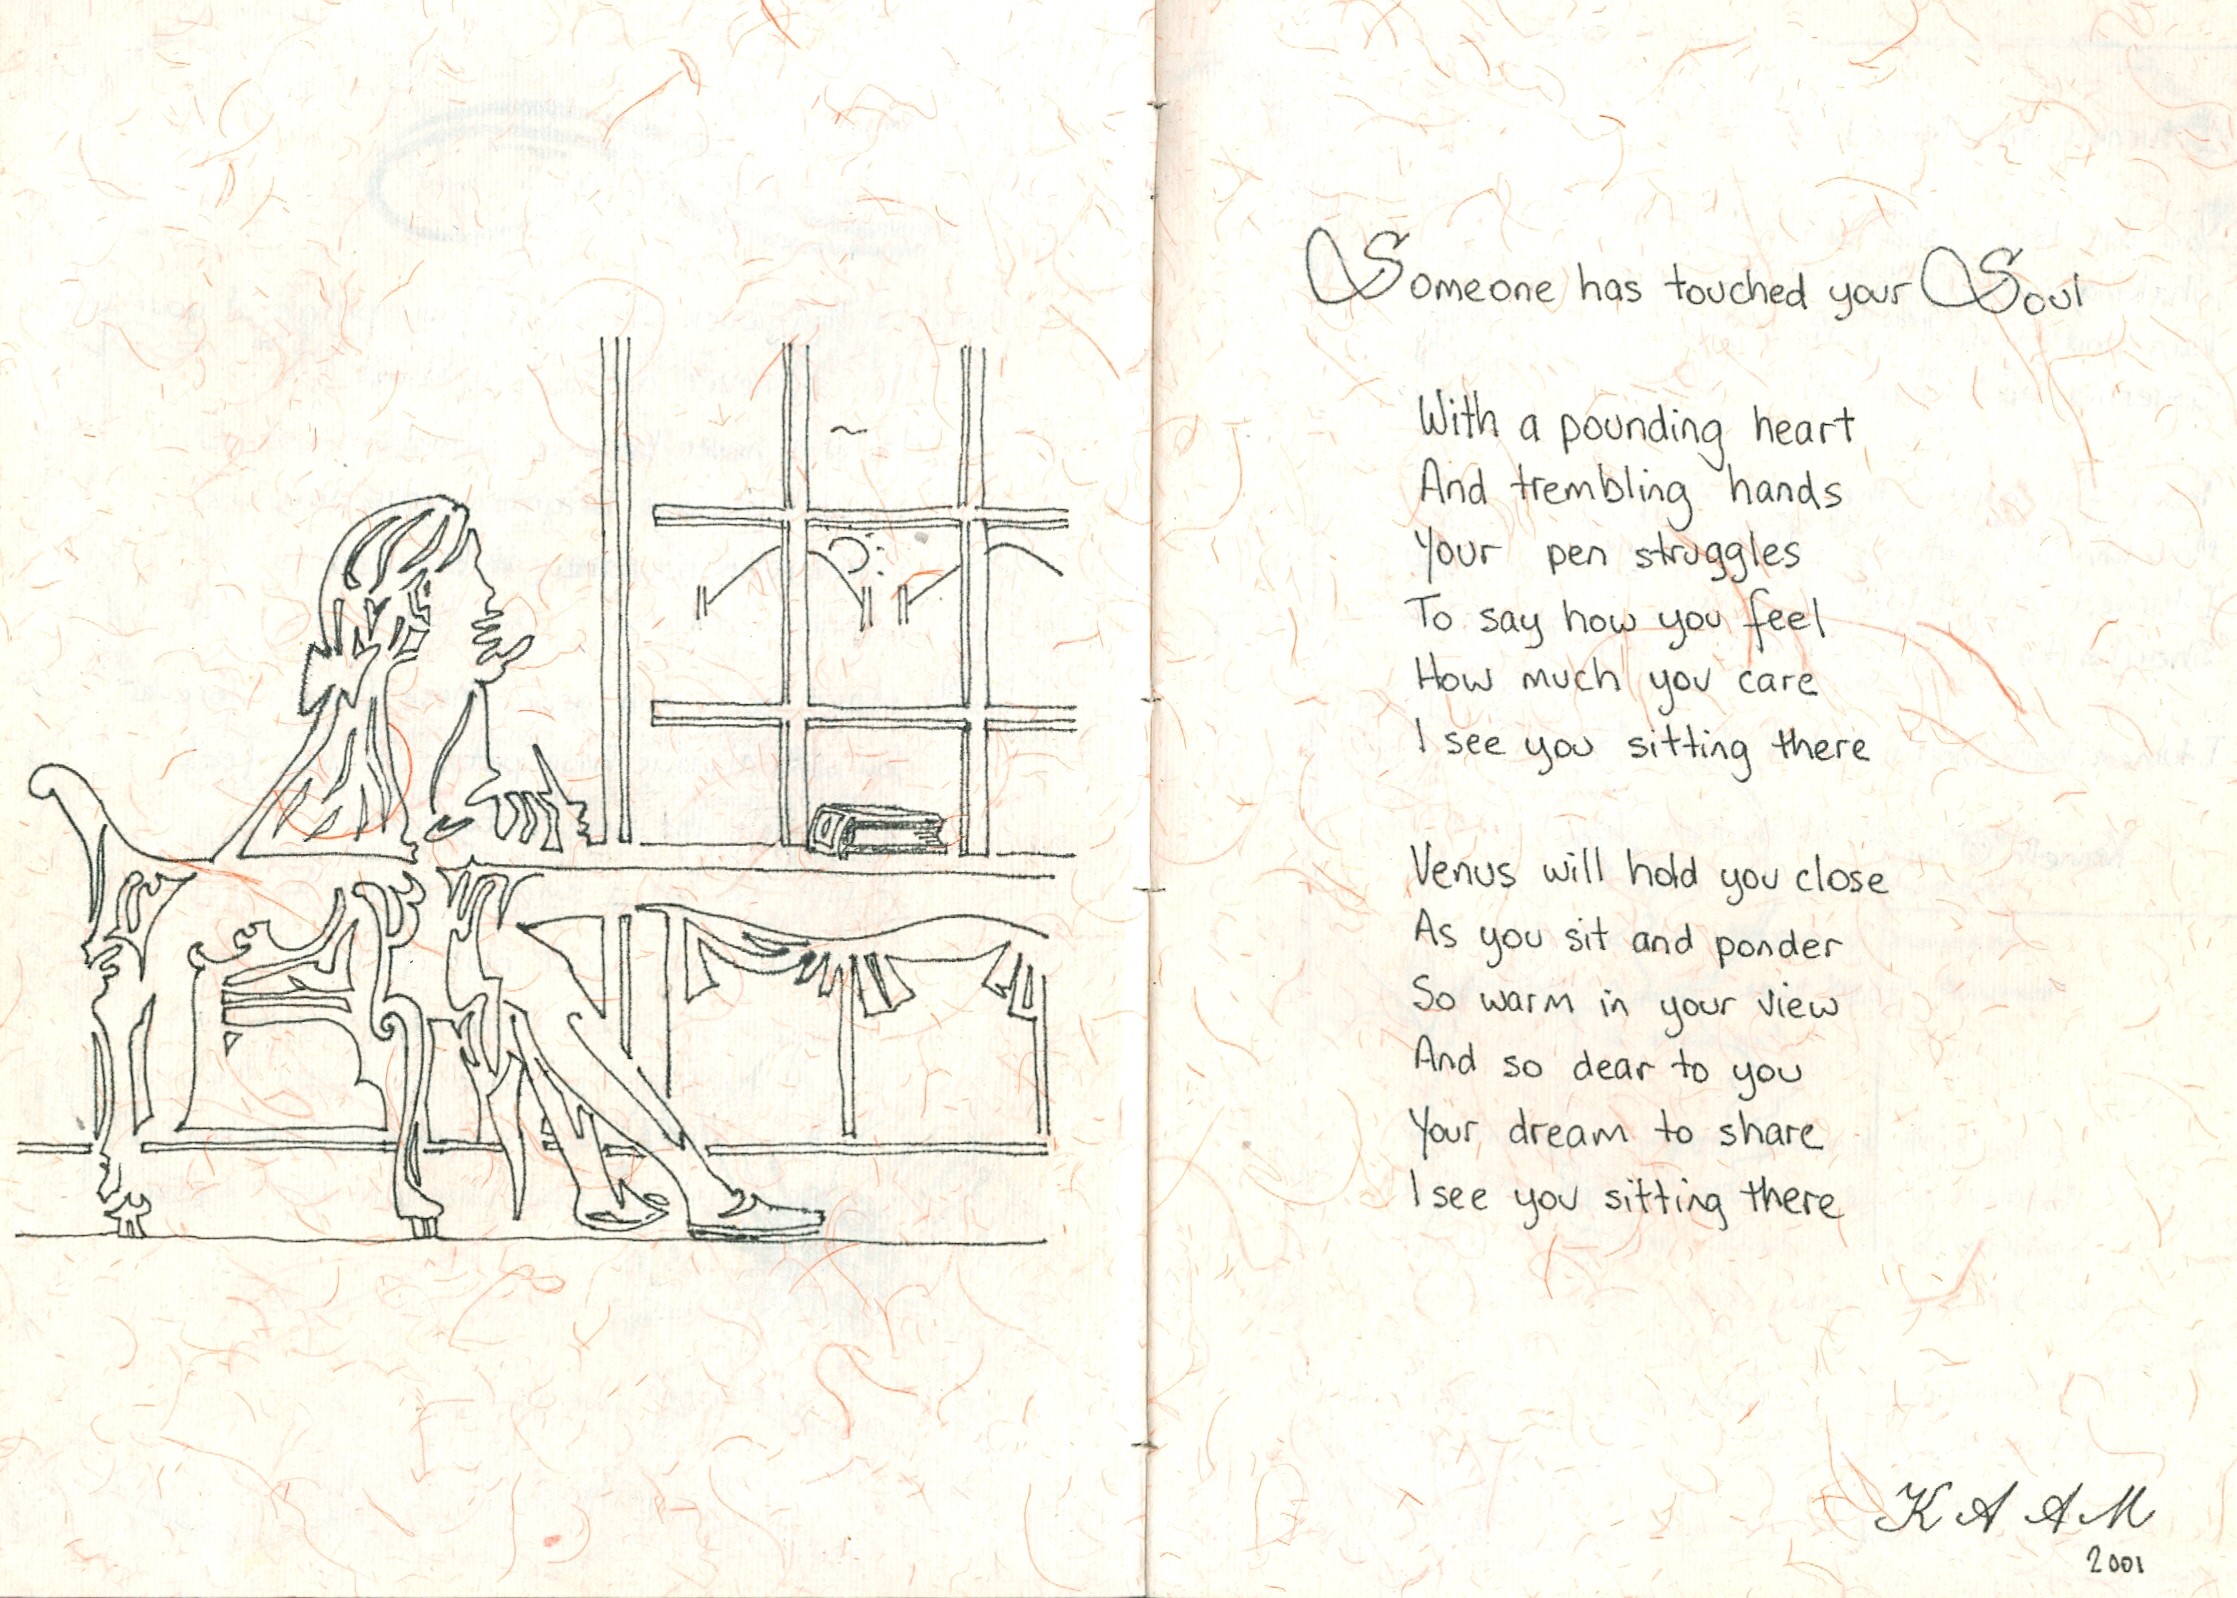 Someone has touched your Soul
With a pounding heart
And trembling hands
Your pen struggles
To say how you feel
How much you care
I see you sitting there
Venus will hold you close
As you sit and ponder
So warm in your view
And so dear to you
Your dream to share
I see you sitting there
K A A M
2001